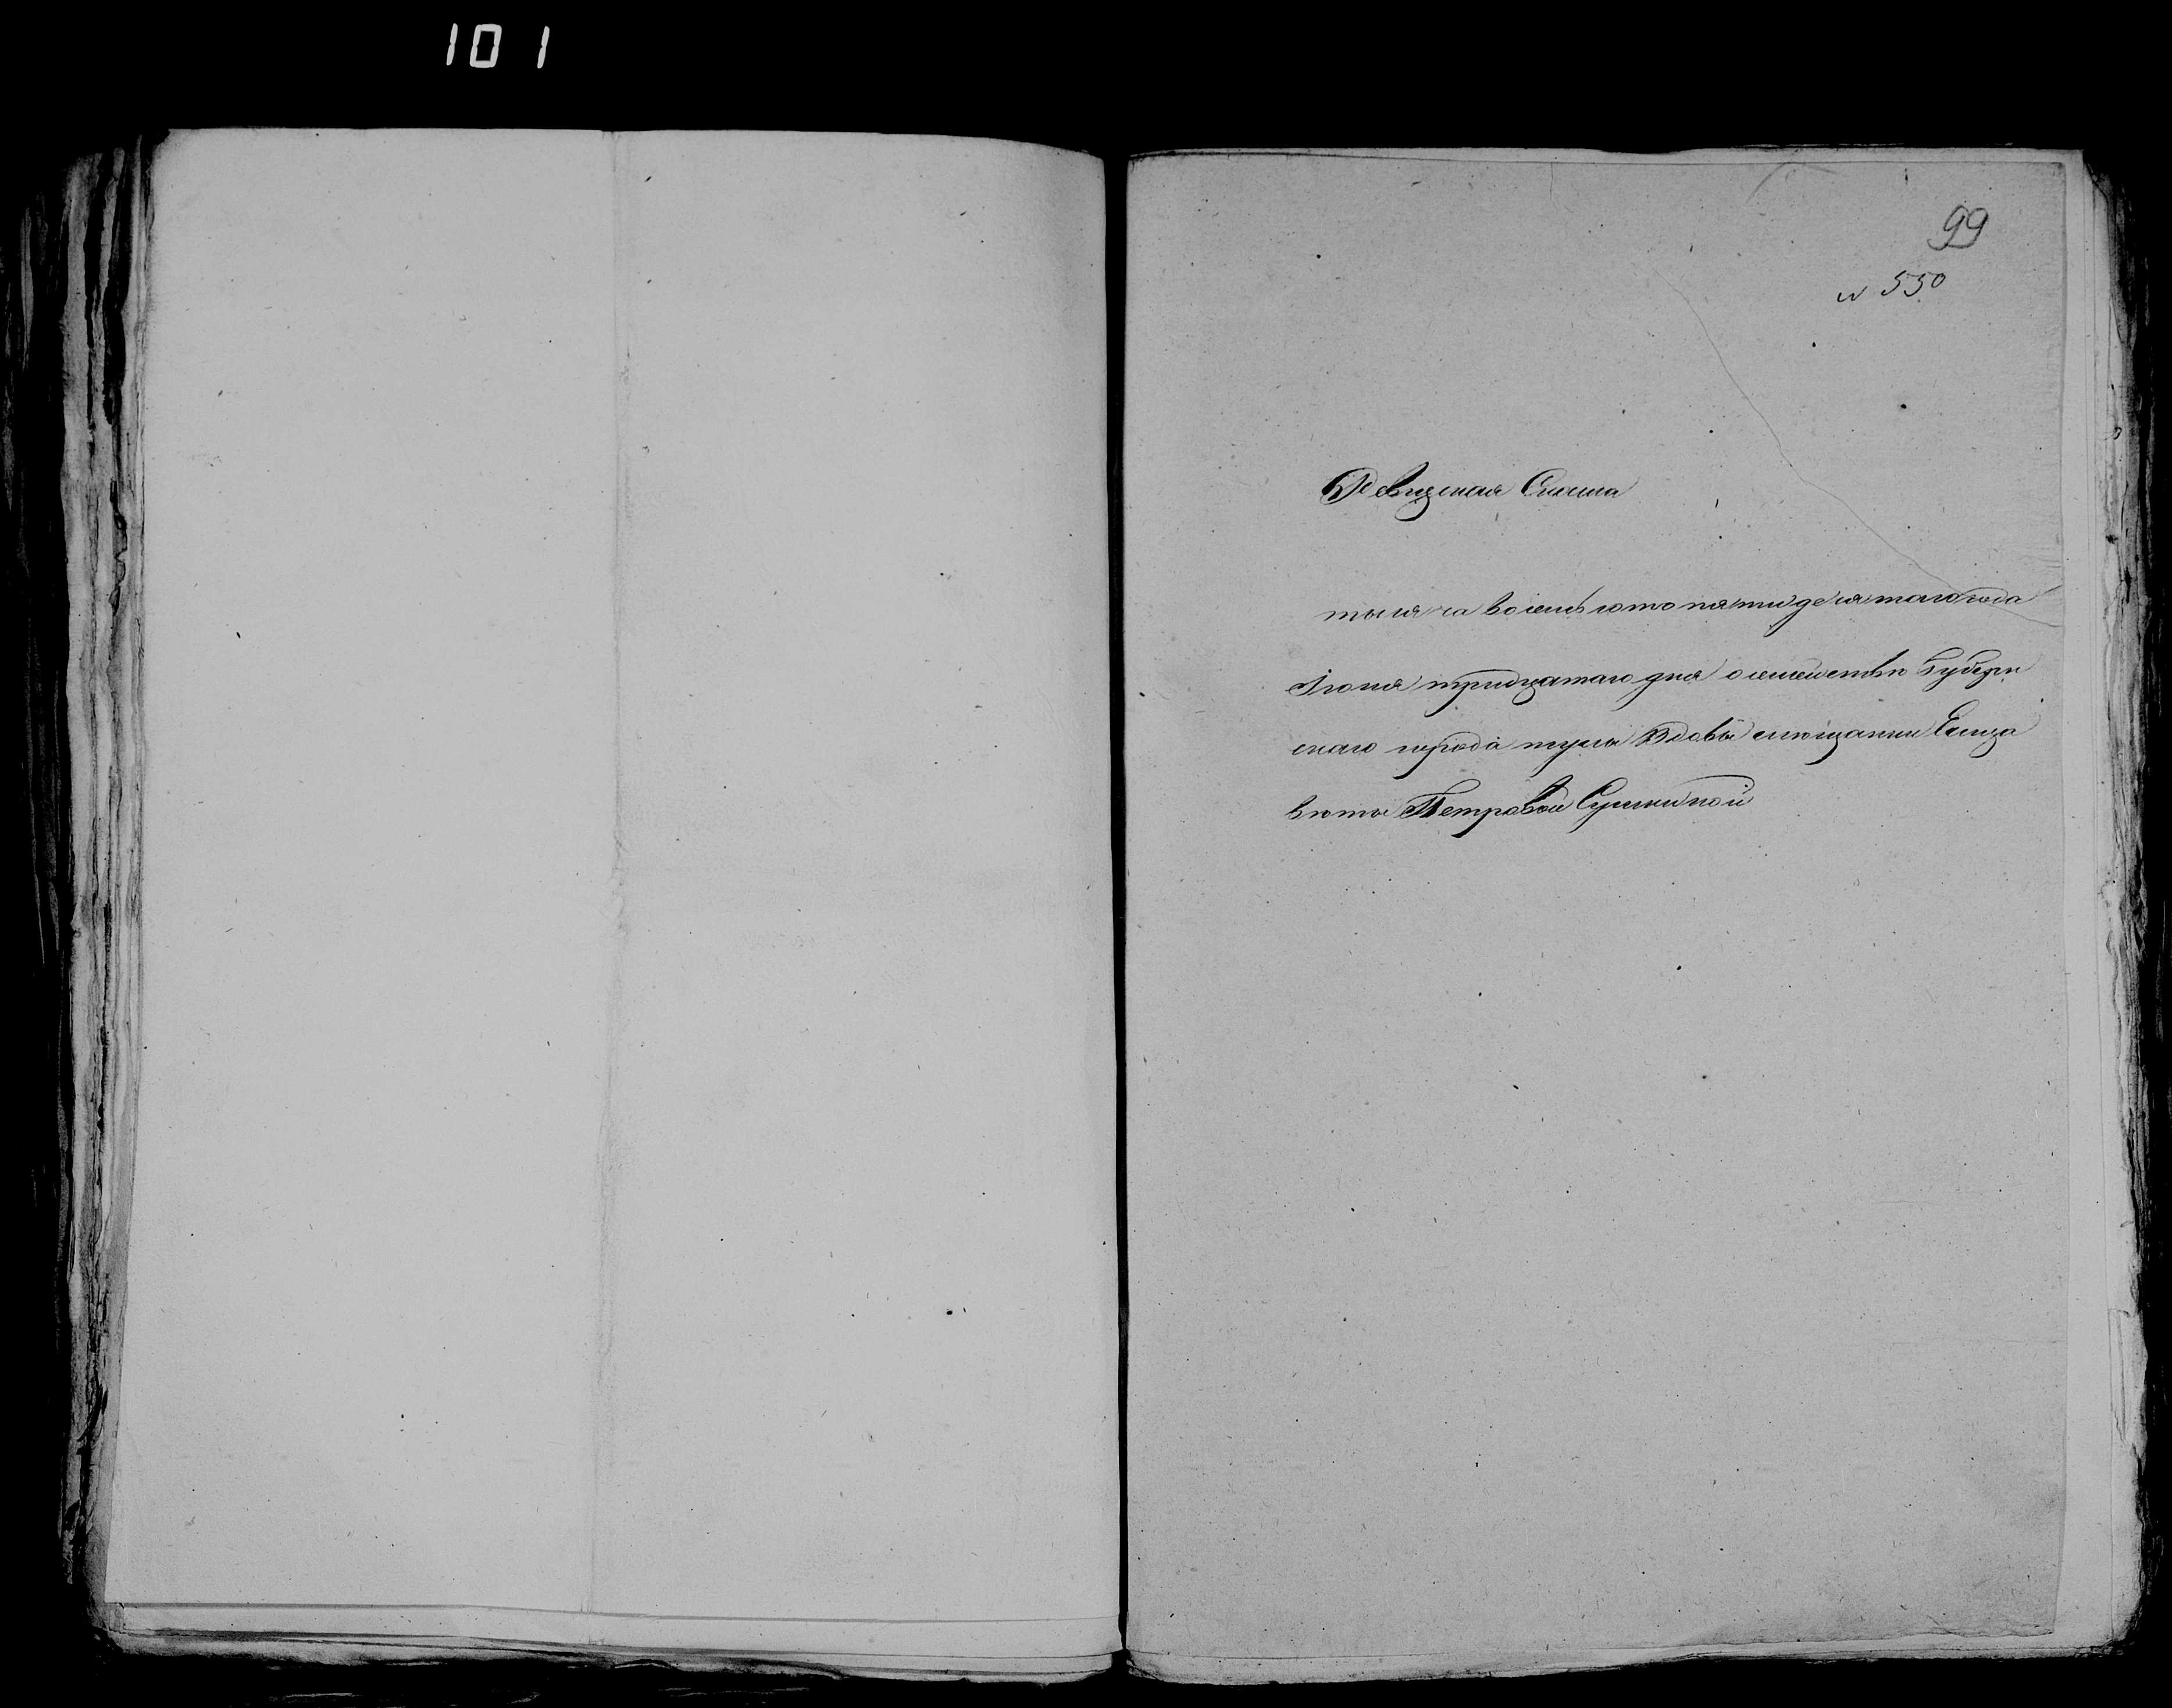 101
99
№ 550
Ревизская Скаска
тысяча восемь сотъ пятидесятаго года
Іюня тридцатаго дня о семействѣ Губерн
скаго города тулы Вдовы мѣщанки Елиза
вѣты Петровой Сушкиной